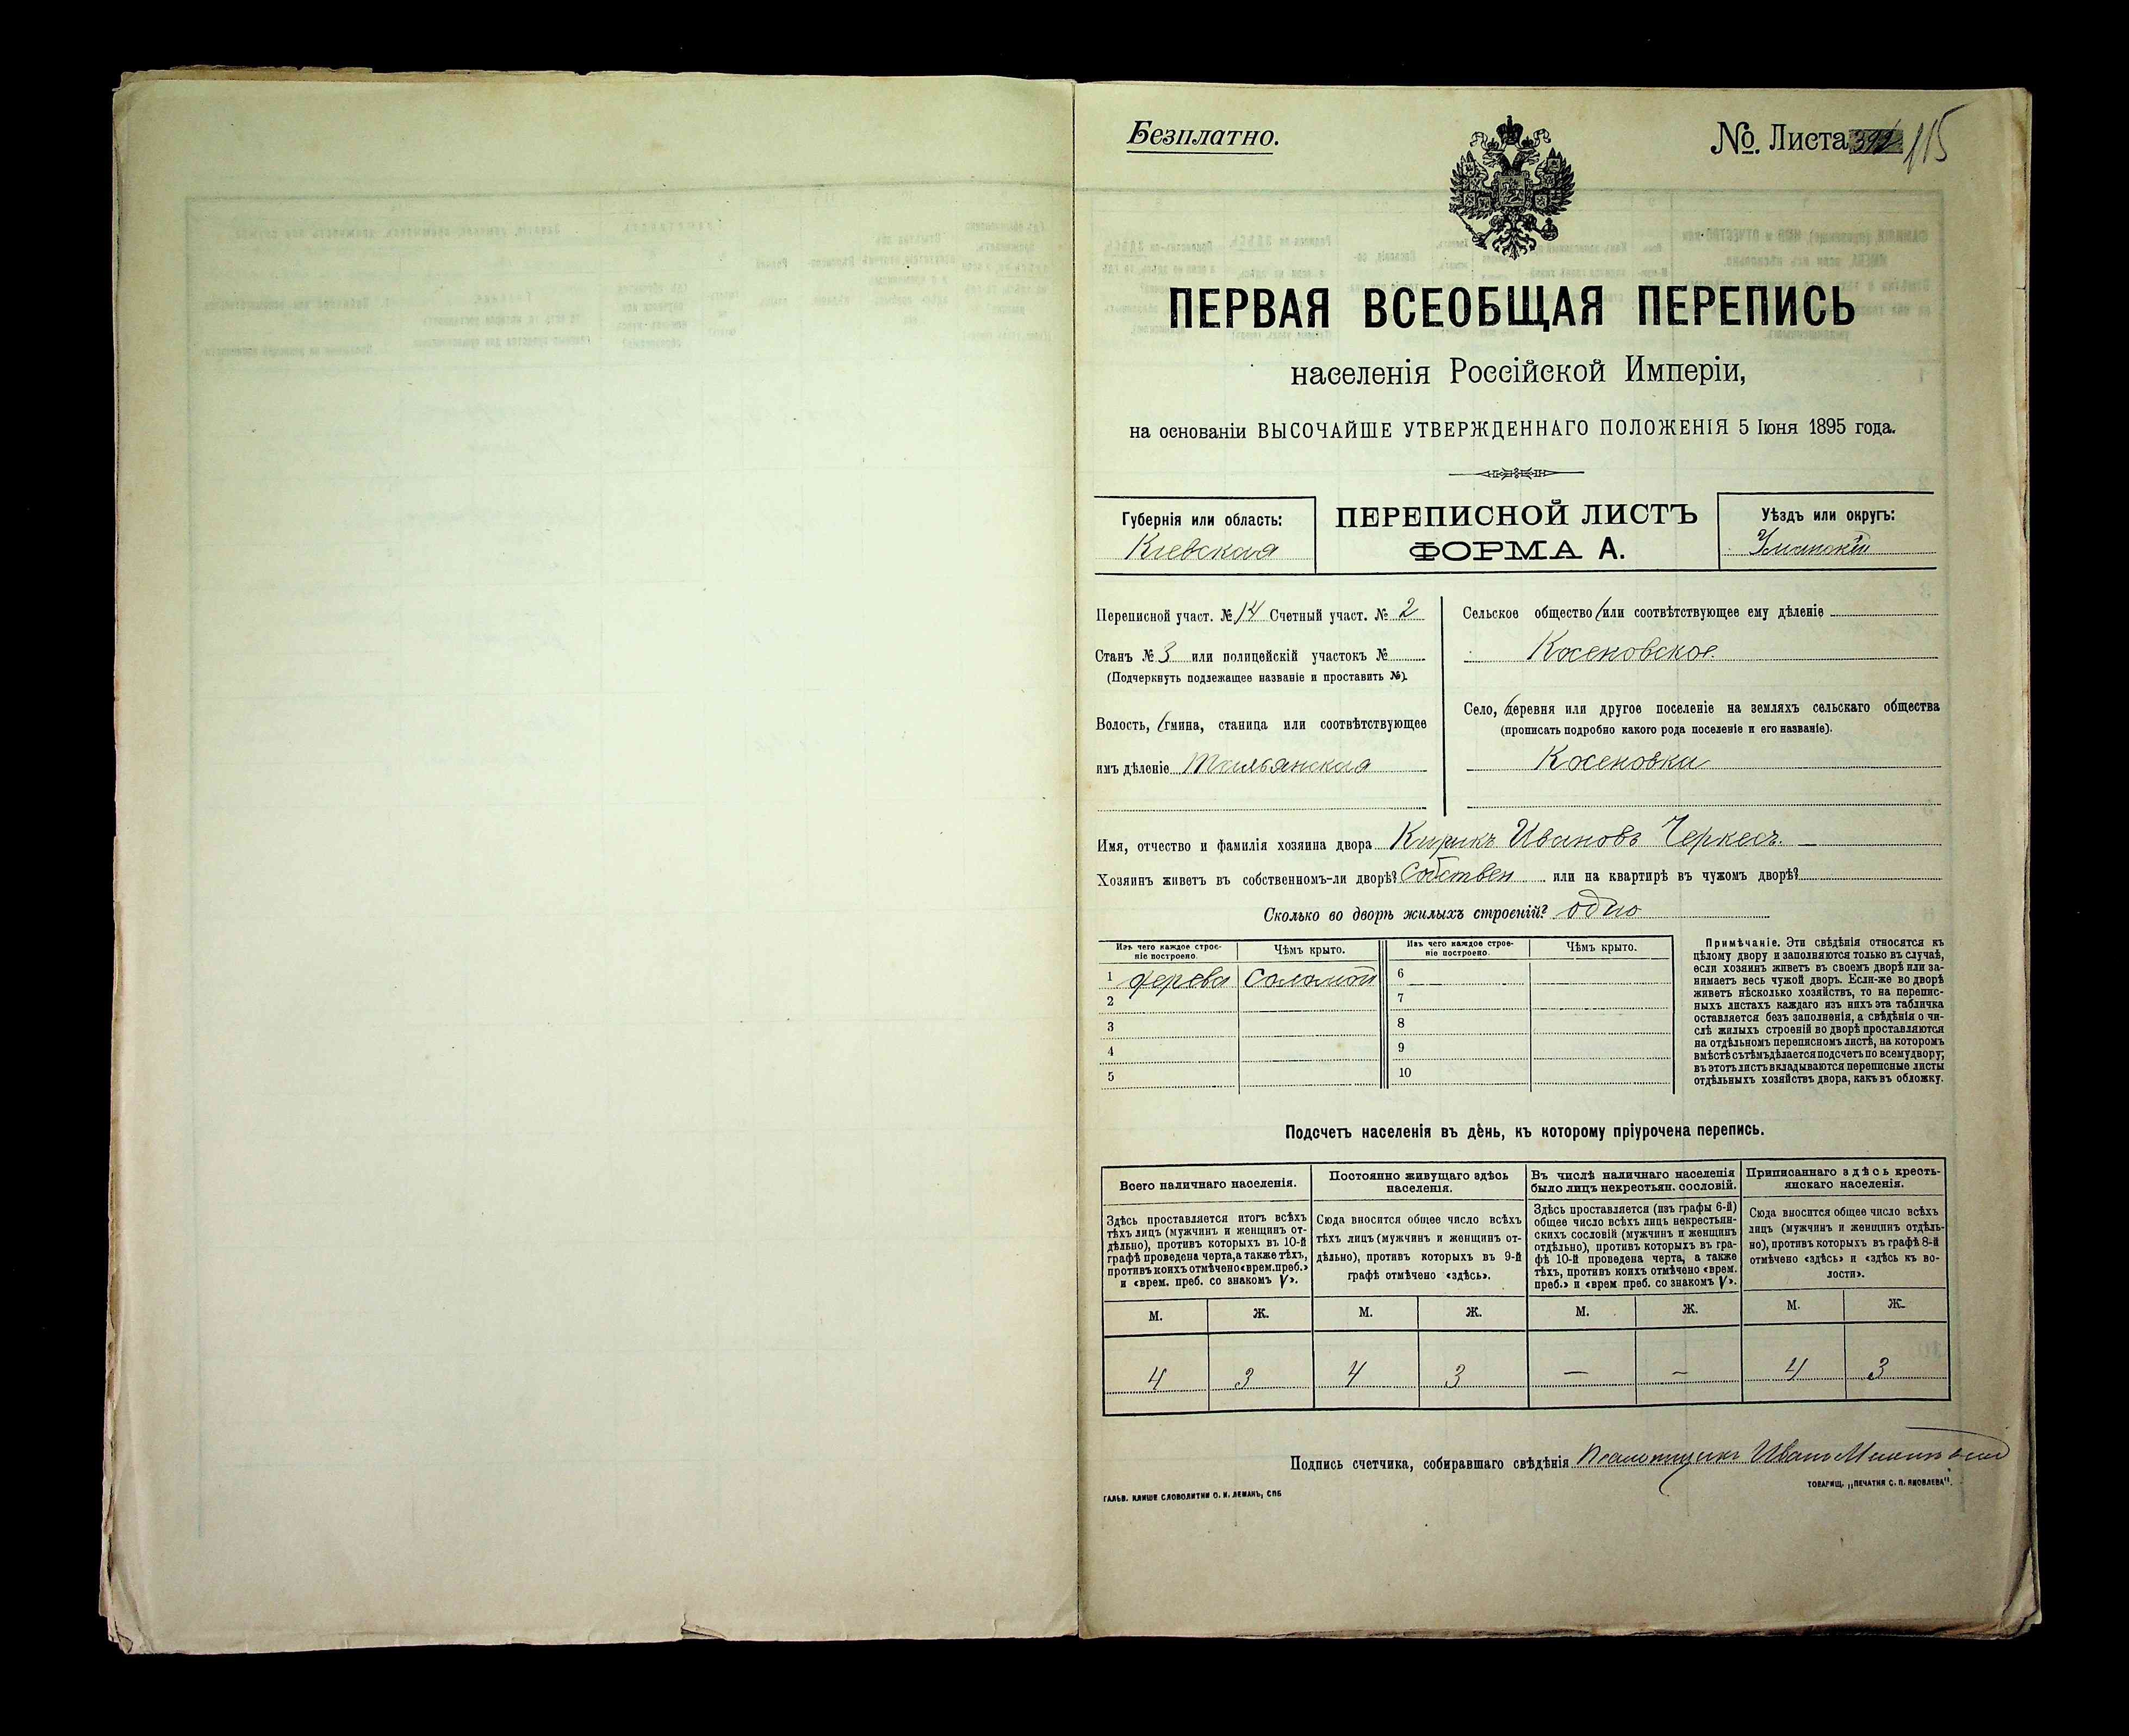 Безплатно.
№ Листа 115
ПЕРВАЯ ВСЕОБЩАЯ ПЕРЕПИСЬ
населенія Россійской Имперіи,
на основаніи ВЫСОЧАЙШЕ УТВЕРЖДЕННАГО ПОЛОЖЕНІЯ 5 Іюня 1895 года.
Губернія или область:
Кіевская
ПЕРЕПИСНОЙ ЛИСТЪ
ФОРМА А.
Уѣздъ или округъ:
Уманскій
Переписной участ. № 14 Счетный участ. № 2
Станъ № 3 или полицейскій участокъ №
(Подчеркнуть подлежащее названіе и проставить №).
Волость, (гмина, станица или соотвѣтствующее
имъ дѣленіе Тальянская
Сельское общество (или соотвѣтствующее ему дѣленіе
Косеновское.
Село, (деревня или другое поселеніе на земляхъ сельскаго общества
(прописать подробно какого рода поселеніе и его названіе).
Косеновка
Имя, отчество и фамилія хозяина двора Кирикъ Ивановъ Черкесъ. —
Хозяинъ живетъ въ собственномъ-ли дворѣ? Собствен или на квартирѣ въ чужомъ дворѣ?
Сколько во дворѣ жилыхъ строеній? одно
Изъ чего каждое строе-
ніе построено.
Чѣмъ крыто.
Изъ чего каждое строе-
ніе построено.
Чѣмъ крыто.
1 дерева Соломой 6
2 7
3 8
4 9
5 10
Примѣчаніе. Эти свѣдѣнія относятся къ
цѣлому двору и заполняются только въ случаѣ,
если хозяинъ живетъ въ своемъ дворѣ или за-
нимаетъ весь чужой дворъ. Если-же во дворѣ
живетъ нѣсколько хозяйствъ, то на перепис-
ныхъ листахъ каждаго изъ нихъ эта табличка
оставляется безъ заполненія, а свѣдѣнія о чи-
слѣ жилыхъ строеній во дворѣ проставляются
на отдѣльномъ переписномъ листѣ, на которомъ
вмѣстѣ съ тѣмъ дѣлается подсчетъ по всему двору;
въ этотъ листъ вкладываются переписные листы
отдѣльныхъ хозяйствъ двора, какъ въ обложку.
Подсчетъ населенія въ день, къ которому пріурочена перепись.
Всего наличнаго населенія.
Здѣсь проставляется итогъ всѣхъ
тѣхъ лицъ (мужчинъ и женщинъ от-
дѣльно), противъ которыхъ въ 10-й
графѣ проведена черта, а также тѣхъ,
противъ коихъ отмѣчено «врем. преб.»
и «врем. преб. со знакомъ V».
Постоянно живущаго здѣсь
населенія.
Сюда вносится общее число всѣхъ
тѣхъ лицъ (мужчинъ и женщинъ от-
дѣльно), противъ которыхъ въ 9-й
графѣ отмѣчено «здѣсь».
Въ числѣ наличнаго населенія
было лицъ некрестьян. сословій.
Здѣсь проставляется (изъ графы 6-й)
общее число всѣхъ лицъ некрестьян-
скихъ сословій (мужчинъ и женщинъ
отдѣльно), противъ которыхъ въ гра-
фѣ 10-й проведена черта, а также
тѣхъ, противъ коихъ отмѣчено «врем.
преб.» и «врем преб. со знакомъ V».
Приписаннаго здѣсь кресть-
янскаго населенія.
Сюда вносится общее число всѣхъ
лицъ (мужчинъ и женщинъ отдѣль-
но), противъ которыхъ въ графѣ 8-й
отмѣчено «здѣсь» и «здѣсь къ во-
лости».
М. Ж. М. Ж. М. Ж. М. Ж.
4 3 4 3 — — 4 3
Подпись счетчика, собиравшаго свѣдѣнія Псаломщикъ Иванъ
ГАЛЬВ. КЛИШЕ СЛОВОЛИТНИ О. И. ЛЕМАНЪ, СПБ
ТОВАРИЩ. „ПЕЧАТНЯ С. П. ЯКОВЛЕВА".